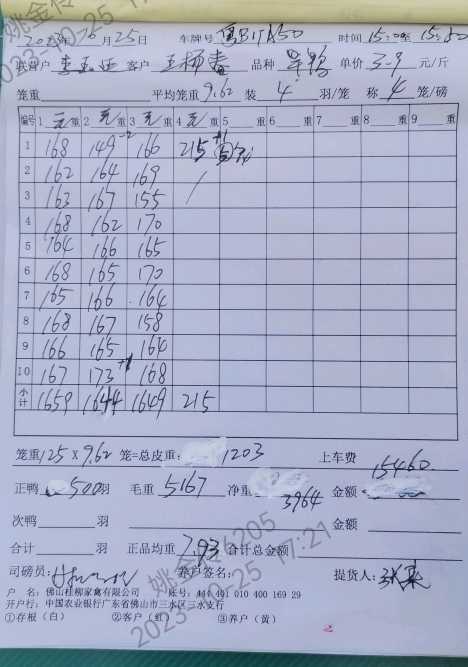 2023年6月25日 车牌号 时间15:00至15:50
客户 品种 单价3-9元/斤
笼重 平均笼重9.62 装4羽/笼 称4笼/磅
编号 1 重 2 重 3 重 4 重 5 重 6 重 7 重 8 重 9 重
1 168 149 -2 166 215 +1
2 162 164 169
3 163 167 155
4 168 162 170
5 164 166 165
6 168 165 170
7 165 166 164
8 168 167 158
9 166 165 164
10 167 173 +1 168
小计 1659 1644 1649 215
笼重125×9.62 笼=总皮重: 1203 上车费
15460
正鸭 500羽 毛重 5167 净重 3964 金额
次鸭 羽 金额
合计 羽 正品均重 7.93 合计总金额
司磅员: 养户签名: 提货人:
户 名: 佛山桂柳家禽有限公司 账号: 444 401 010 400 169 29
开户行: 中国农业银行广东省佛山市三水区三水支行
①存根(白) ②客户(红) ③养户(黄)
2023-06-25 17:21